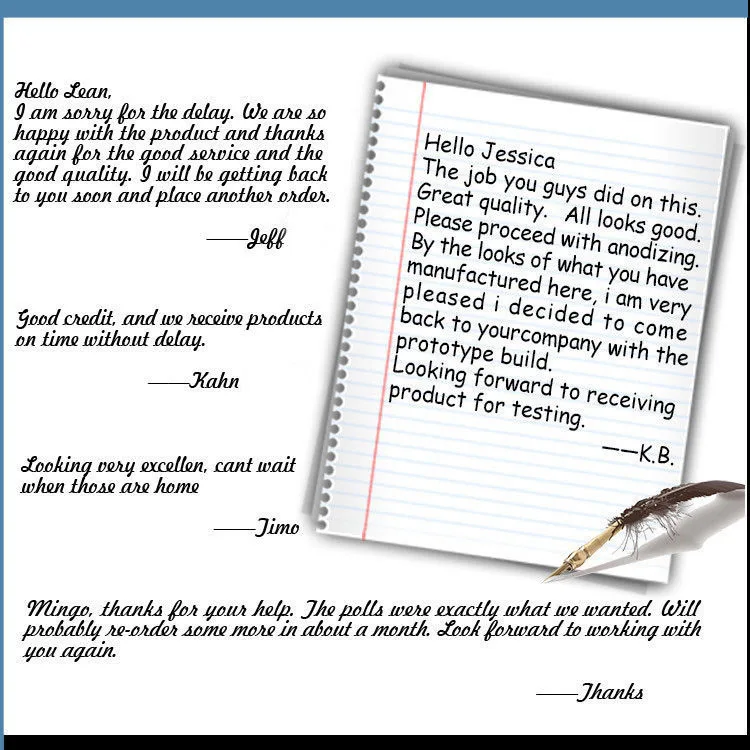 Hello Lean,
I am sorry for the delay. We are so
happy with the product and thanks
again for the good service and the
good quality. I will be getting back
to you soon and place another order.
——Jeff
Good credit, and we receive products
on time without delay.
——Kahn
Looking very excellen, cant wait
when those are home
——Timo
Hello Jessica
The job you guys did on this.
Great quality. All looks good.
Please proceed with anodizing.
By the looks of what you have
manufactured here, i am very
pleased i decided to come
back to yourcompany with the
prototype build.
Looking forward to receiving
product for testing.
——K.B.
Mingo, thanks for your help. The polls were exactly what we wanted. Will
probably re-order some more in about a month. Look forward to working with
you again.
——Thanks